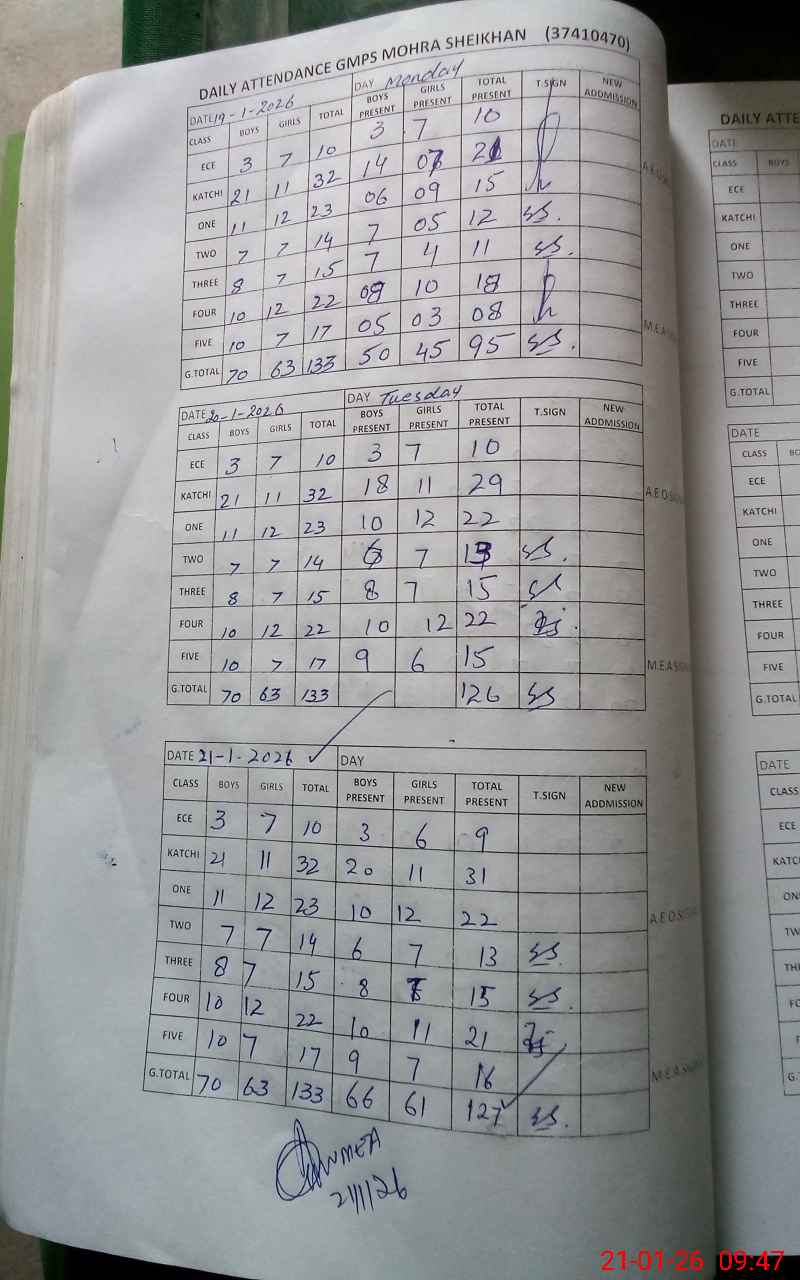 DAILY ATTENDANCE GMPS MOHRA SHEIKHAN (37410470)
DATE 19-1-2026 DAY Monday
CLASS BOYS GIRLS TOTAL BOYS PRESENT GIRLS PRESENT TOTAL PRESENT T.SIGN NEW ADDMISSION
ECE 3 7 10 3 7 10
KATCHI 21 11 32 14 07 21
ONE 11 12 23 06 09 15
TWO 7 7 14 7 05 12 SS.
THREE 8 7 15 7 4 11 SS.
FOUR 10 12 22 08 10 18
FIVE 10 7 17 05 03 08
G.TOTAL 70 63 133 50 45 95 SS.
DATE 20-1-2026 DAY Tuesday
CLASS BOYS GIRLS TOTAL BOYS PRESENT GIRLS PRESENT TOTAL PRESENT T.SIGN NEW ADDMISSION
ECE 3 7 10 3 7 10
KATCHI 21 11 32 18 11 29
ONE 11 12 23 10 12 22
TWO 7 7 14 6 7 13 SS.
THREE 8 7 15 8 7 15 SS
FOUR 10 12 22 10 12 22
FIVE 10 7 17 9 6 15
G.TOTAL 70 63 133 126 SS
DATE 21-1-2026 DAY
CLASS BOYS GIRLS TOTAL BOYS PRESENT GIRLS PRESENT TOTAL PRESENT T.SIGN NEW ADDMISSION
ECE 3 7 10 3 6 9
KATCHI 21 11 32 20 11 31
ONE 11 12 23 10 12 22
TWO 7 7 14 6 7 13 SS.
THREE 8 7 15 8 7 15 SS.
FOUR 10 12 22 10 11 21
FIVE 10 7 17 9 7 16
G.TOTAL 70 63 133 66 61 127 SS.
MEA
21/1/26
A.E.O
M.E.A
A.E.O
M.E.A
A.E.O
M.E.A
DAILY ATTE
DATE
CLASS BOYS
ECE
KATCHI
ONE
TWO
THREE
FOUR
FIVE
G.TOTAL
DATE
CLASS
ECE
KATCHI
ONE
TWO
THREE
FOUR
FIVE
G.TOTAL
DATE
CLASS
ECE
21-01-26 09:47